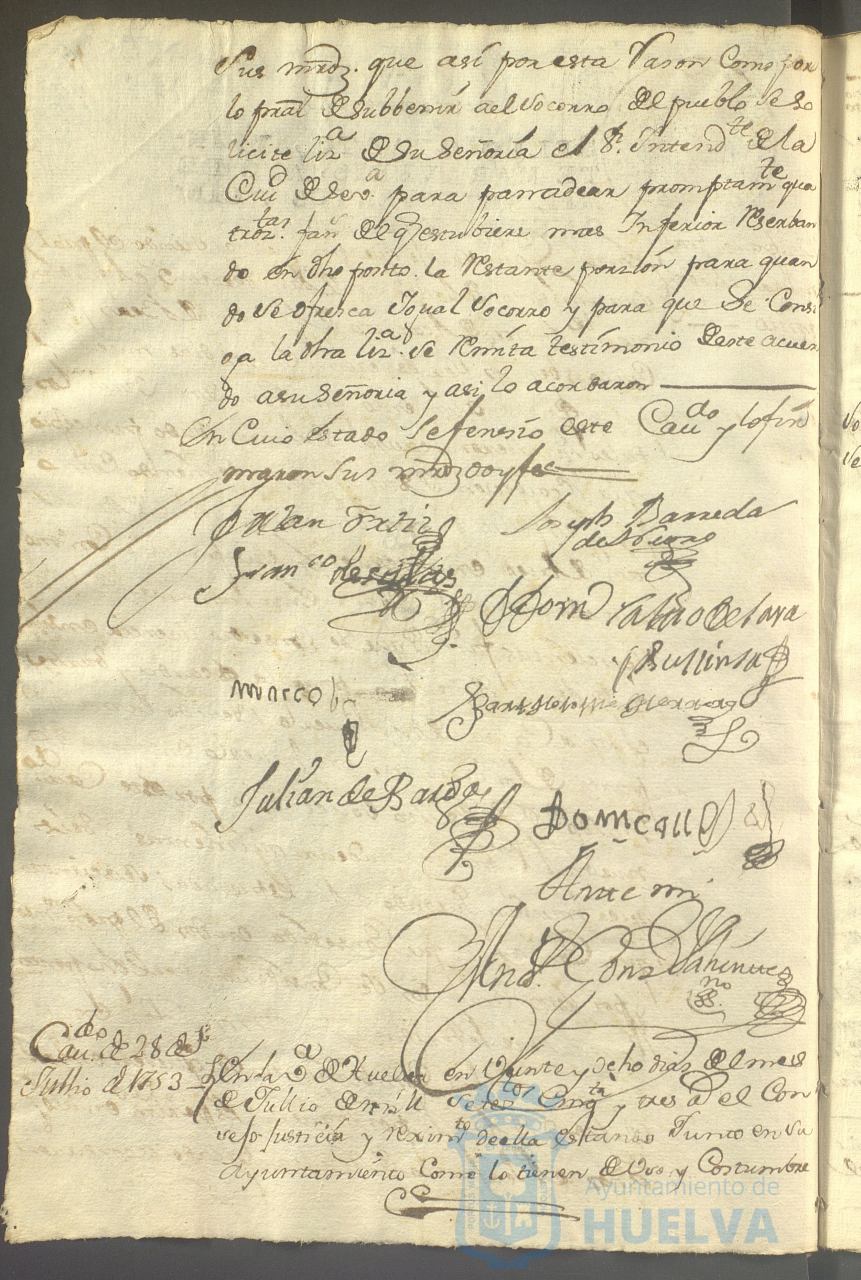 Sus mrdz. que así por esta Rason Como por
lo pral de subbenir a el socorro del pueblo se so
licite liza de su señoría el Sr. Intendte de la
Ciud de seva para panadear promptamte qua
troztas. fans del q estubiere mas Inferior Reserban
do en dho posito la Restante porzion para quan
do se ofresca Igual socorro y para que se Consi
ga la dha liza. se Remita testimonio deste acuer
do a su señoria y asi lo acordaron
En Cuio estado se feneció este Caudo y lo fir
maron sus mrdz doy fee
Julian Ortiz
Joseph Barreda
Franco
Marcos
Bartholome
Julian de
Ante mi
Caudos de 28 de
Jullio de 1753
En la Va de Huelva en Veinte y ocho dias del mes
de Jullio de mill Setestos Cinqta y tres as el Con
sejo Justicia y Reximto de ella estando Junto en su
Ayuntamiento Como lo tienen de Uso y Costumbre
Ayuntamiento de
HUELVA